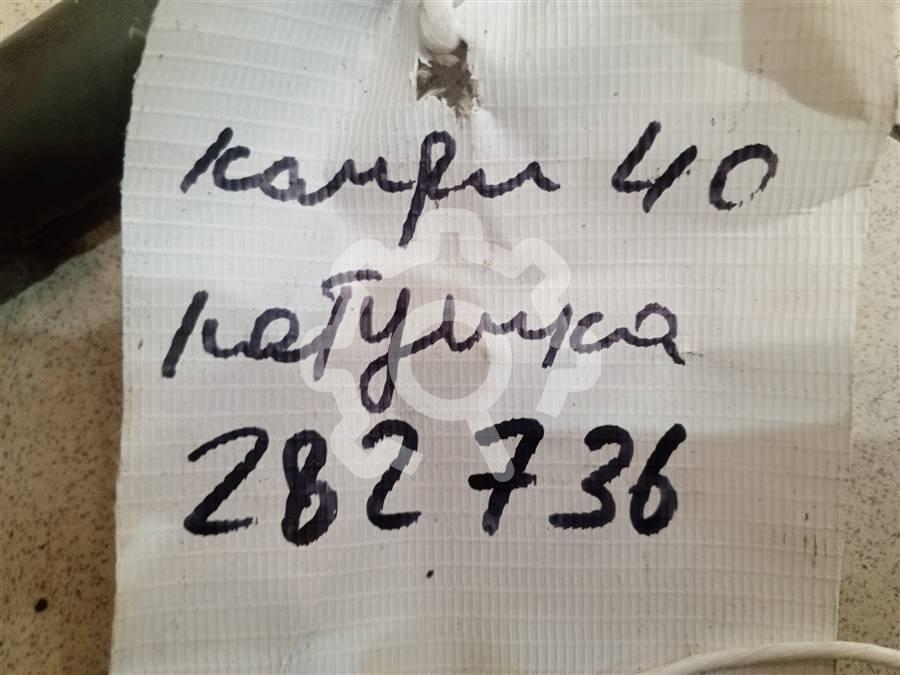 камри 40
катушка
282736